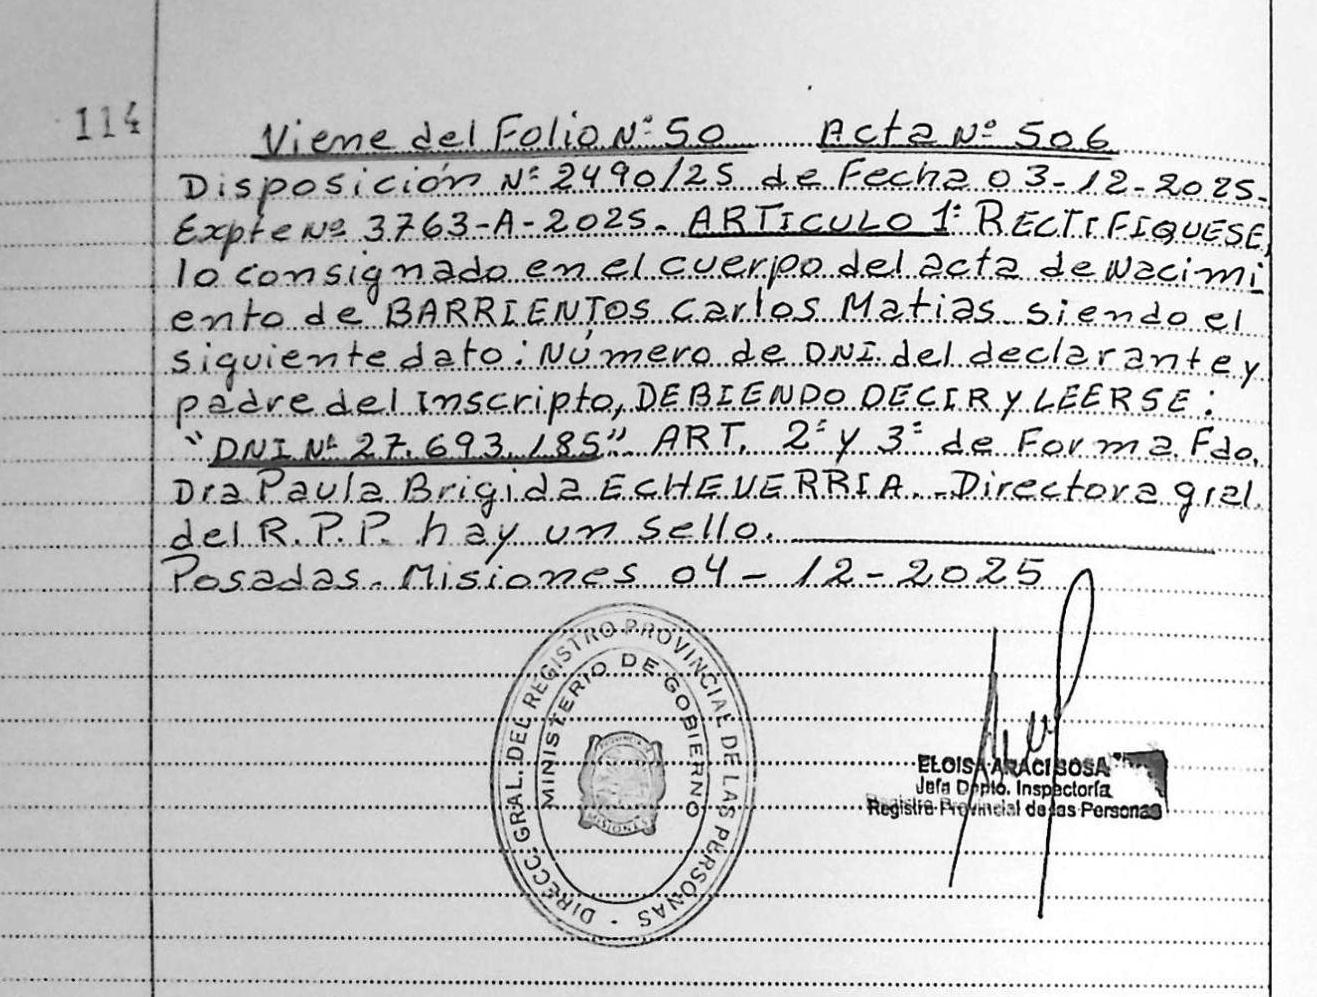 114
Viene del Folio Nº 50 Acta Nº 506
Disposición Nº 2490/25 de Fecha 03-12-2025-
Expte Nº 3763-A-2025. ARTICULO 1º RECTIFIQUESE,
lo consignado en el cuerpo del acta de Nacimi
ento de BARRIENTOS Carlos Matias siendo el
siguiente dato: Número de DNI. del declarante y
padre del inscripto, DEBIENDO DECIR y LEERSE:
"DNI Nº 27.693.185" ART. 2º y 3º de Forma Fdo.
Dra Paula Brigida ECHEVERRIA.-Directora gral.
del R.P.P. hay un sello.
Posadas-Misiones 04-12-2025
DIRECC. GRAL. DEL REGISTRO PROVINCIAL DE LAS PERSONAS -
MINISTERIO DE GOBIERNO
PROVINCIA DE
MISIONES
ELOISA ARACI SOSA
Jefa Dpto. Inspectoría
Registro Provincial de las Personas